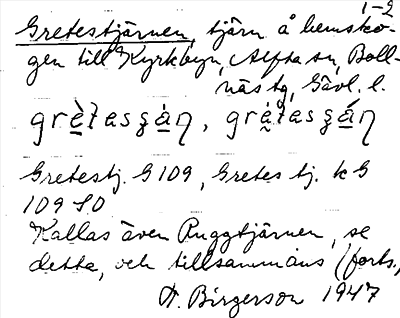 1-2
Gretestjärnen, tjärn å hemsko-
gen till Kyrkbyn, Alfta sn, Boll-
näs tg, Gävl. l.
grètasʒán, grètasʒán
Gretestj. G 109, Gretes tj. k G
109 SO
Kallas även Ruggtjärnen, se
detta, och tillsammans (forts.)
H. Birgerson 1947